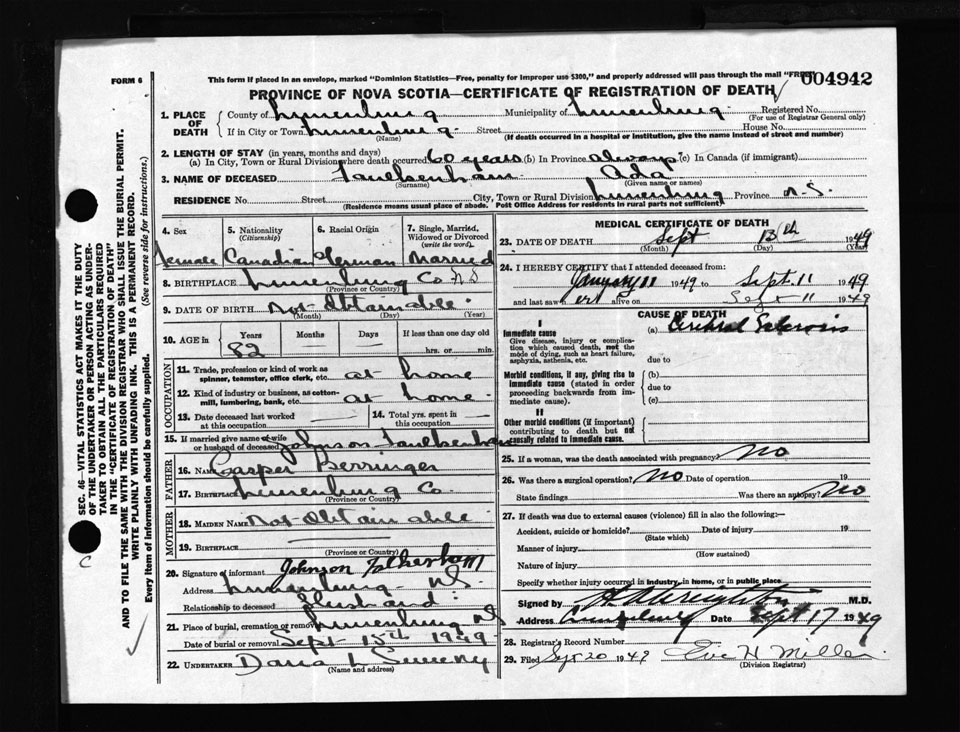 This form if placed in an envelope, marked "Dominion Statistics—Free, penalty for improper use $300," and properly addressed will pass through the mail "FREE"
004942
FORM 6
PROVINCE OF NOVA SCOTIA—CERTIFICATE OF REGISTRATION OF DEATH
SEC. 46—VITAL STATISTICS ACT MAKES IT THE DUTY
OF THE UNDERTAKER OR PERSON ACTING AS UNDER-
TAKER TO OBTAIN ALL THE PARTICULARS REQUIRED
IN THE "CERTIFICATE OF REGISTRATION OF DEATH"
AND TO FILE THE SAME WITH THE DIVISION REGISTRAR WHO SHALL ISSUE THE BURIAL PERMIT.
WRITE PLAINLY WITH UNFADING INK. THIS IS A PERMANENT RECORD.
Every item of information should be carefully supplied. (See reverse side for instructions.)
C
1. PLACE OF DEATH
County of Lunenburg Municipality of Lunenburg Registered No.
(For use of Registrar General only)
If in City or Town Lunenburg Street House No.
(Name) (If death occurred in a hospital or institution, give the name instead of street and number)
2. LENGTH OF STAY (in years, months and days)
(a) In City, Town or Rural Division where death occurred 60 years (b) In Province always (c) In Canada (if immigrant)
3. NAME OF DECEASED Faulkenham Ada
(Surname) (Given name or names)
RESIDENCE No. Street City, Town or Rural Division Lunenburg Province N.S.
(Residence means usual place of abode. Post Office Address for residents in rural parts not sufficient)
4. Sex
Female
5. Nationality
(Citizenship)
Canadian
6. Racial Origin
German
7. Single, Married, Widowed or Divorced
(write the word)
Married
8. BIRTHPLACE Lunenburg Co N S
(Province or Country)
9. DATE OF BIRTH Not Obtainable
(Month) (Day) (Year)
10. AGE in
Years Months Days If less than one day old
82 — — hrs. or min.
OCCUPATION
11. Trade, profession or kind of work as
spinner, teamster, office clerk, etc. at home
12. Kind of industry or business, as cotton-
mill, lumbering, bank, etc. at home
13. Date deceased last worked
at this occupation —
14. Total yrs. spent in
this occupation —
15. If married give name of wife
or husband of deceased Johnson Faulkenham
FATHER
16. NAME Casper Berringer
17. Birthplace Lunenburg Co.
(Province or Country)
MOTHER
18. MAIDEN NAME Not Obtainable
19. BIRTHPLACE
(Province or Country)
20. Signature of informant Johnson Falkenham
Address Lunenburg NS.
Relationship to deceased Husband
21. Place of burial, cremation or removal Lunenburg NS
Date of burial or removal Sept 15th 1949
22. UNDERTAKER Dana L Sweeny
(Name and address)
MEDICAL CERTIFICATE OF DEATH
23. DATE OF DEATH Sept 13th 1949
(Month) (Day) (Year)
24. I HEREBY CERTIFY that I attended deceased from:
January 11 1949 to Sept. 11 1949
and last saw er alive on Sept 11 1949
CAUSE OF DEATH
I
Immediate cause
Give disease, injury or complica-
tion which caused death, not the
mode of dying, such as heart failure,
asphyxia, asthenia, etc.
(a) Cerebral Sclerosis
due to
Morbid conditions, if any, giving rise to
immediate cause (stated in order
proceeding backwards from im-
mediate cause).
(b)
due to
(c)
II
Other morbid conditions (if important)
contributing to death but not
causally related to immediate cause.
25. If a woman, was the death associated with pregnancy? No
26. Was there a surgical operation? No Date of operation 19
State findings Was there an autopsy? No
27. If death was due to external causes (violence) fill in also the following:—
Accident, suicide or homicide? Date of injury 19
(State which)
Manner of injury
(How sustained)
Nature of injury
Specify whether injury occurred in industry, in home, or in public place
Signed by M.D.
Address Lunenburg Date Sept 17 1949
28. Registrar's Record Number
29. Filed Sept 20 1949 H Miller
(Division Registrar)